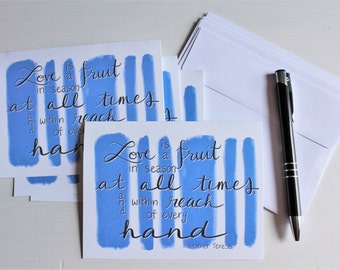 Love is a fruit
in season
at all times,
and within reach
of every
hand
Love is a fruit
in season
at all times,
and within reach
of every
hand
Mother Teresa